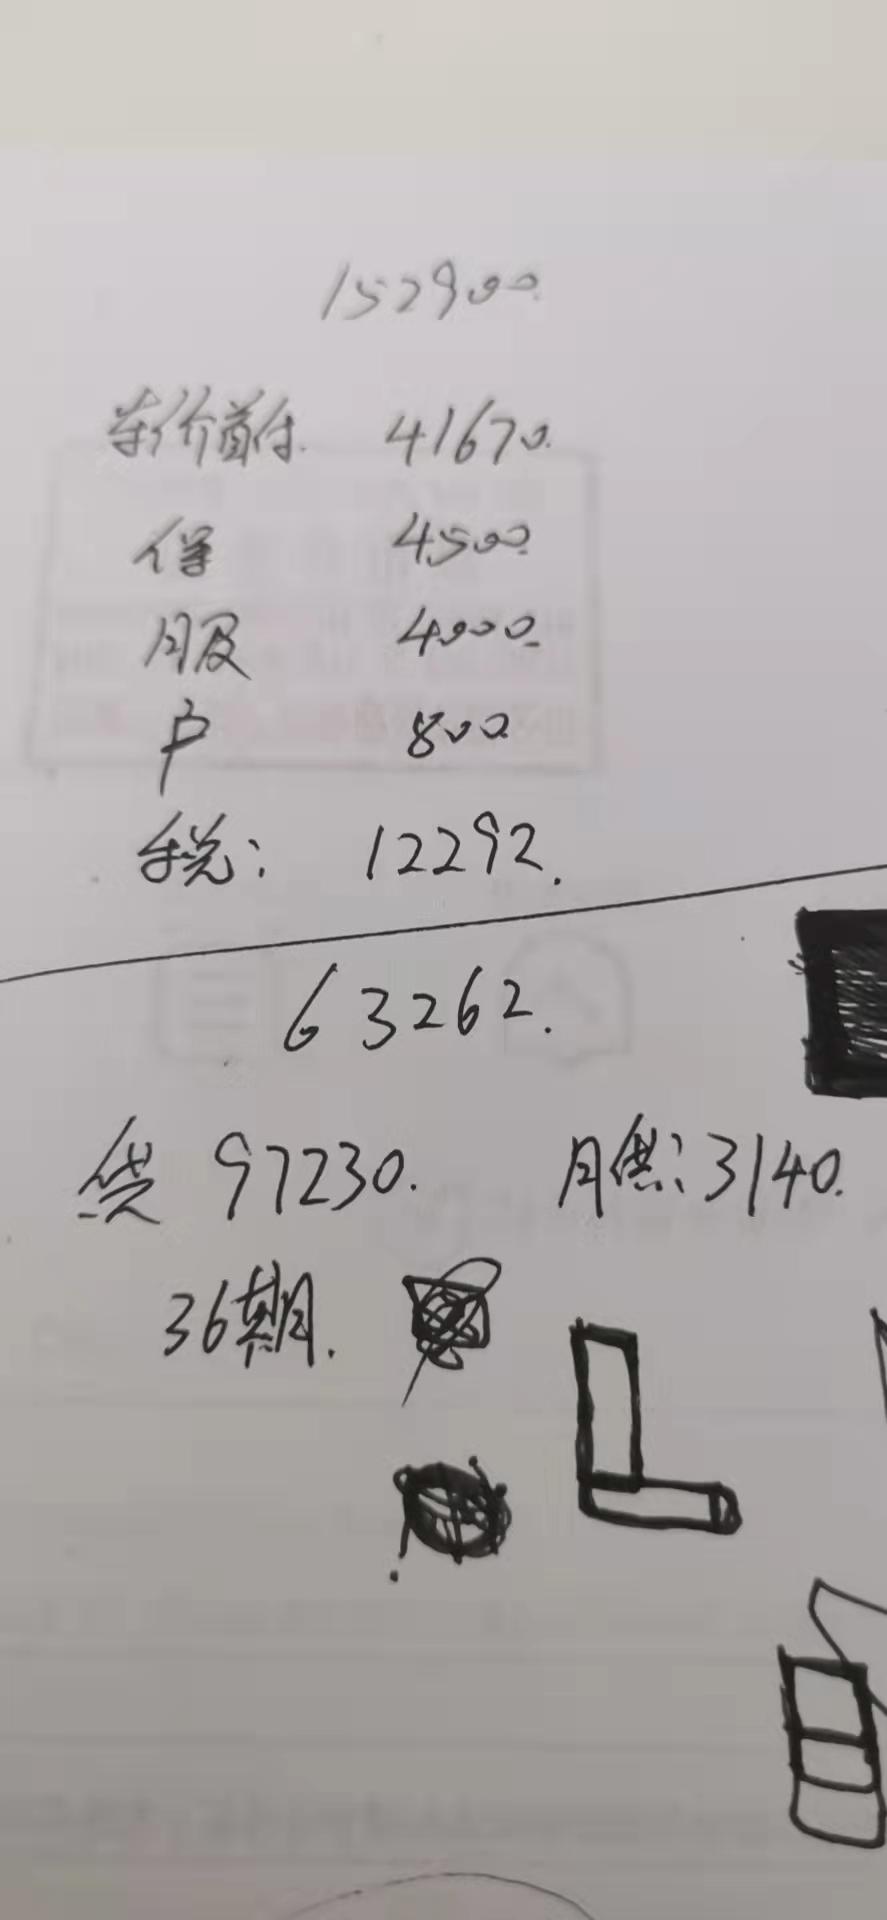 152900.
车价首付. 41670.
保 4500.
月服 4000.
户 800
税: 12292.
63262.
贷 97230. 月供: 3140.
36期.